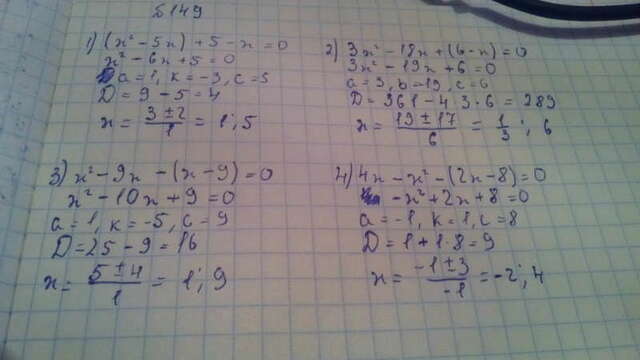 №149
1) (x² - 5x) + 5 - x = 0
x² - 6x + 5 = 0
a = 1, k = -3, c = 5
D = 9 - 5 = 4
x = (3 ± 2)/1 = 1; 5
2) 3x² - 18x + (6 - x) = 0
3x² - 19x + 6 = 0
a = 3, b = 19, c = 6
D = 361 - 4·3·6 = 289
x = (19 ± 17)/6 = 1/3; 6
3) x² - 9x - (x - 9) = 0
x² - 10x + 9 = 0
a = 1, k = -5, c = 9
D = 25 - 9 = 16
x = (5 ± 4)/1 = 1; 9
4) 4x - x² - (2x - 8) = 0
-x² + 2x + 8 = 0
a = -1, k = 1, c = 8
D = 1 + 1·8 = 9
x = (-1 ± 3)/-1 = -2; 4